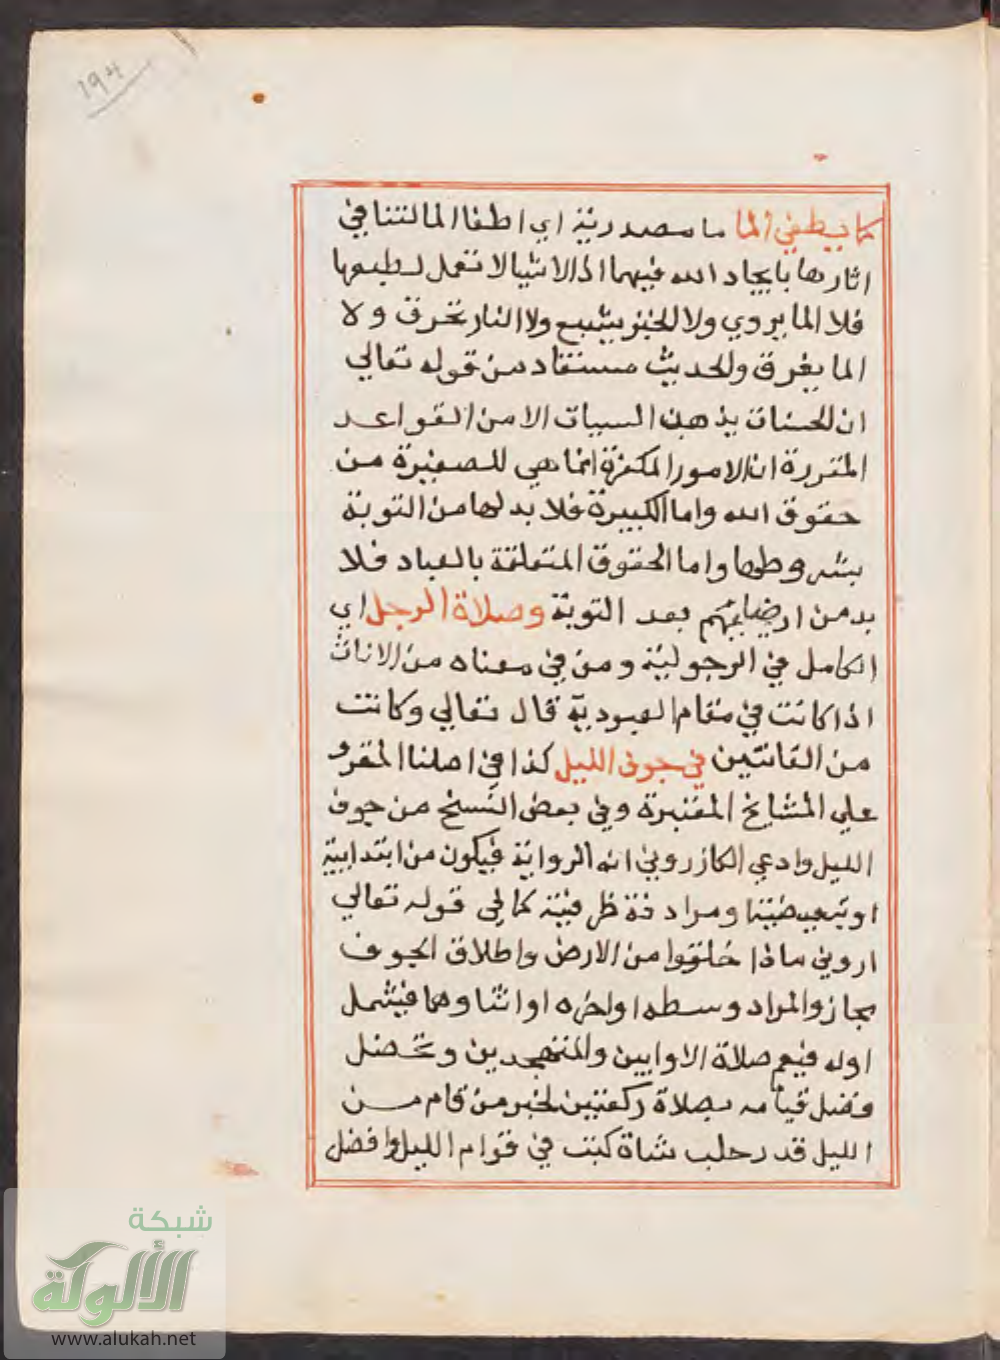 ١٩٤
كما يطفئ الما ما مصدرية اي اطفا الما لتنافي
اثارها بايجاد الله فيهما اذ الاشيا لا تعمل لطبعها
فلا الما يروي ولا الخبز يشبع ولا النار تحرق ولا
الما يغرق والحديث مستفاد من قوله تعالي
ان الحسنات يذهبن السيات الا من القواعد
المقررة ان الامور المكفرة انما هي للصغيرة من
حقوق الله واما الكبيرة فلا بد لها من التوبة
بشروطها واما الحقوق المتعلقة بالعباد فلا
بد من ارضايهم بعد التوبة وصلاة الرجل اي
الكامل في الرجولية ومن في معناه من الاناث
اذا كانت في مقام العبودية قال تعالي وكانت
من القانتين في جوف الليل كذا في اصلنا المقرو
علي المشايخ المعتبرة وفي بعض النسخ من جوف
الليل وادعي الكازروني انه الرواية فيكون من ابتدايية
او تبعيضية ومرادفة ظرفية كما في قوله تعالي
اروني ماذا خلقوا من الارض واطلاق الجوف
مجاز والمراد وسطه او اخره او اثناوهما فيشمل
اوله فيعم صلاة الاوابين والمتهجدين وتحصل
فضل قيامه بصلاة ركعتين لخبر من قام من
الليل قدر حلب شاة كتب في قوام الليل وافضل
شبكة
الألوكة
www.alukah.net